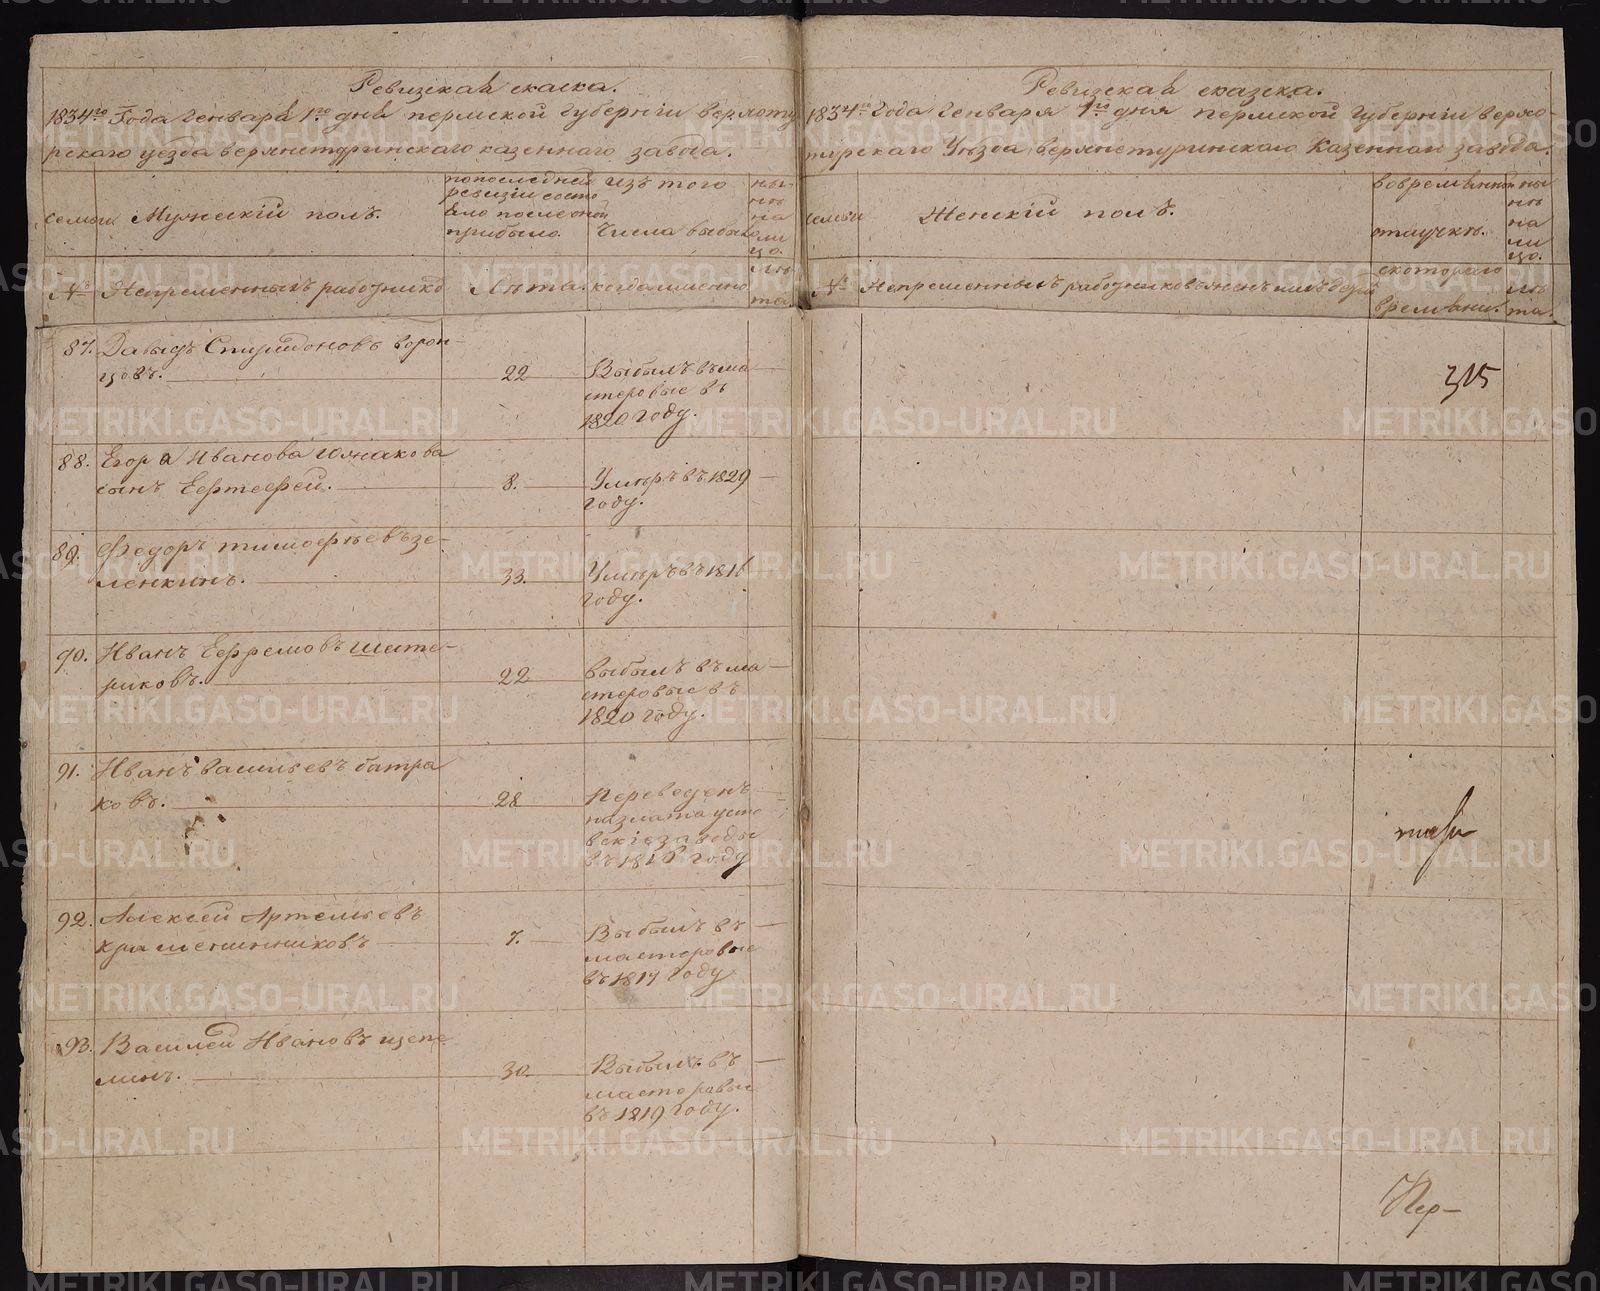 Ревизская скаска.
1834го Года Генваря 1го дня пермской Губернiи верхоту
рскаго уезда верхнетуринскаго казеннаго завода.
семьи
Мужескiй полъ.
попоследней
ревизiи состо
яло последней
прибыло.
изъ того
Числа выбыло
ны
нѣ
на
ли
цо.
№
Непременныхъ работнико
Лѣта.
когда именно
лѣ
та
87. Давыдъ Спиридоновъ ворон-
цовъ. 22 Выбылъ въ ма
стеровые въ
1820 году.
88. Егора Иванова Южакова
сынъ Ефтефей. 8. Умѣръ въ 1829
году.
89. Федоръ тимофѣевъ зе-
ленкинъ. 33. Умѣръ въ 1816
году.
90. Иванъ Ефремовъ шите-
риковъ. 22 выбылъ въ ма
стеровые въ
1820 году.
91. Иванъ васильевъ батра
ковъ. 28 Переведенъ
назлатоусто
вскiе заводы
въ году
92. Алексей Артемьевъ
крашенинниковъ 7. Выбылъ въ
мастеровые
въ 1819 году
93. Василей Ивановъ щепе
линъ. 30. Выбылъ въ
мастеровые
въ 1819 году.
Ревизская сказска.
1834го Года Генваря 1го дня пермской Губернiи верхо-
турскаго Уѣзда верхнетуринскаго Казеннаго завода.
семьи
Женскiй полъ.
вовременной
отлучкѣ.
ны
нѣ
на
ли
цо.
№
Непременныхъ работниковъ женъ ихъ детей
скотораго
времѣни.
лѣ
та.
315
Пер-
METRIKI.GASO-URAL.RU